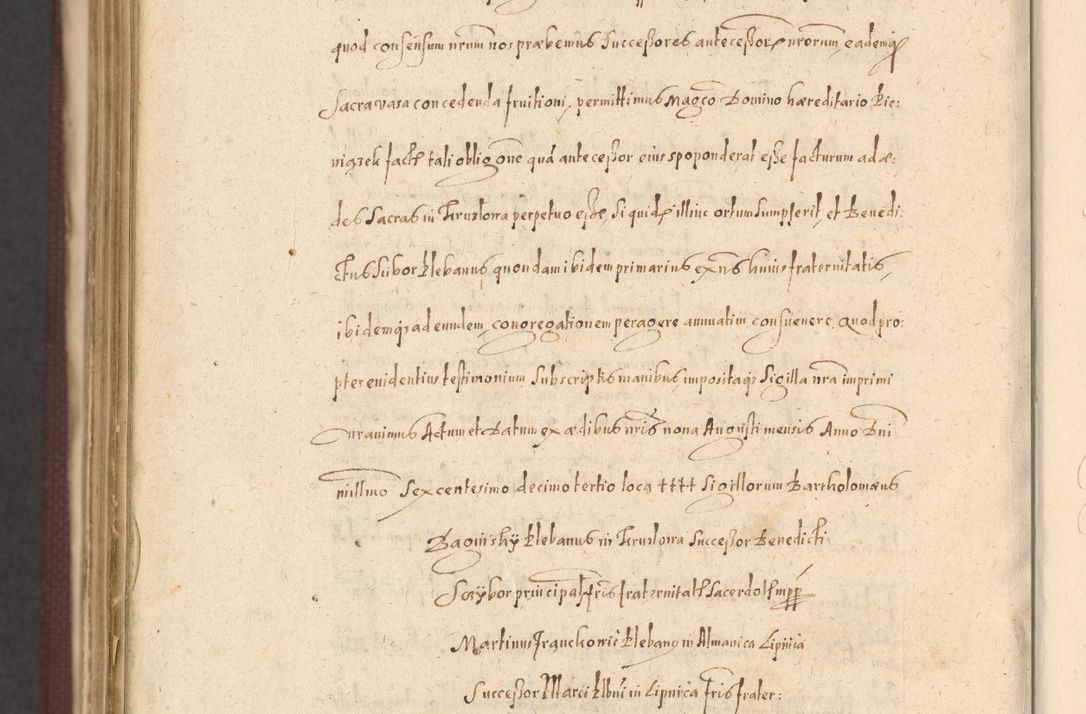 quod consensum nrum nos præbemus Successores antecessor nrorum, eademq
Sacra vasa concedenda fruitioni, permittimus Magco Domino hæreditario Bie:
niaszek factę tali obligone quá antecessor eius spoponderat esse facturum ad æ:
des Sacras in Kruzlowa perpetuo esse, Si quid illinc ortum Sumpserit, et Benedi:
ctus Scibor Plebanus, quondam ibidem primarius ex nris huius fraternitatis,
ibidemq ad eundem, congregationem peragere annuatim consuevere. Quod pro:
pter evidentius testimonium Subscriptis manibus impositaq Sigilla nra imprimi
Curavimus Actum et Datum ex ædibus nris nona Augusti mensis Anno Dni
millmo Sexcentesimo decimo tertio loca tttt Sigillorum Bartholomæus
Baginsky Plebanus in Kruzlowa Successor Benedicti
Sczybor principal fris fraternitatis Sacerdot mpp
Martinus Franckowic Plebanus in Almanica Lipnica
Successor Marci Plbni in Lipnica fris frater: